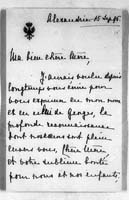 Alexandria 15 Sep 95.
Ma bien chère Mère,
J'aurais voulu depuis
longtemps vous écrire pour
vous exprimer en mon nom
et en celui de Georges, la
profonde reconnaissance
dont nos cœurs sont pleins
envers vous, chère Mère
et votre sublime bonté
pour nous et nos enfants.